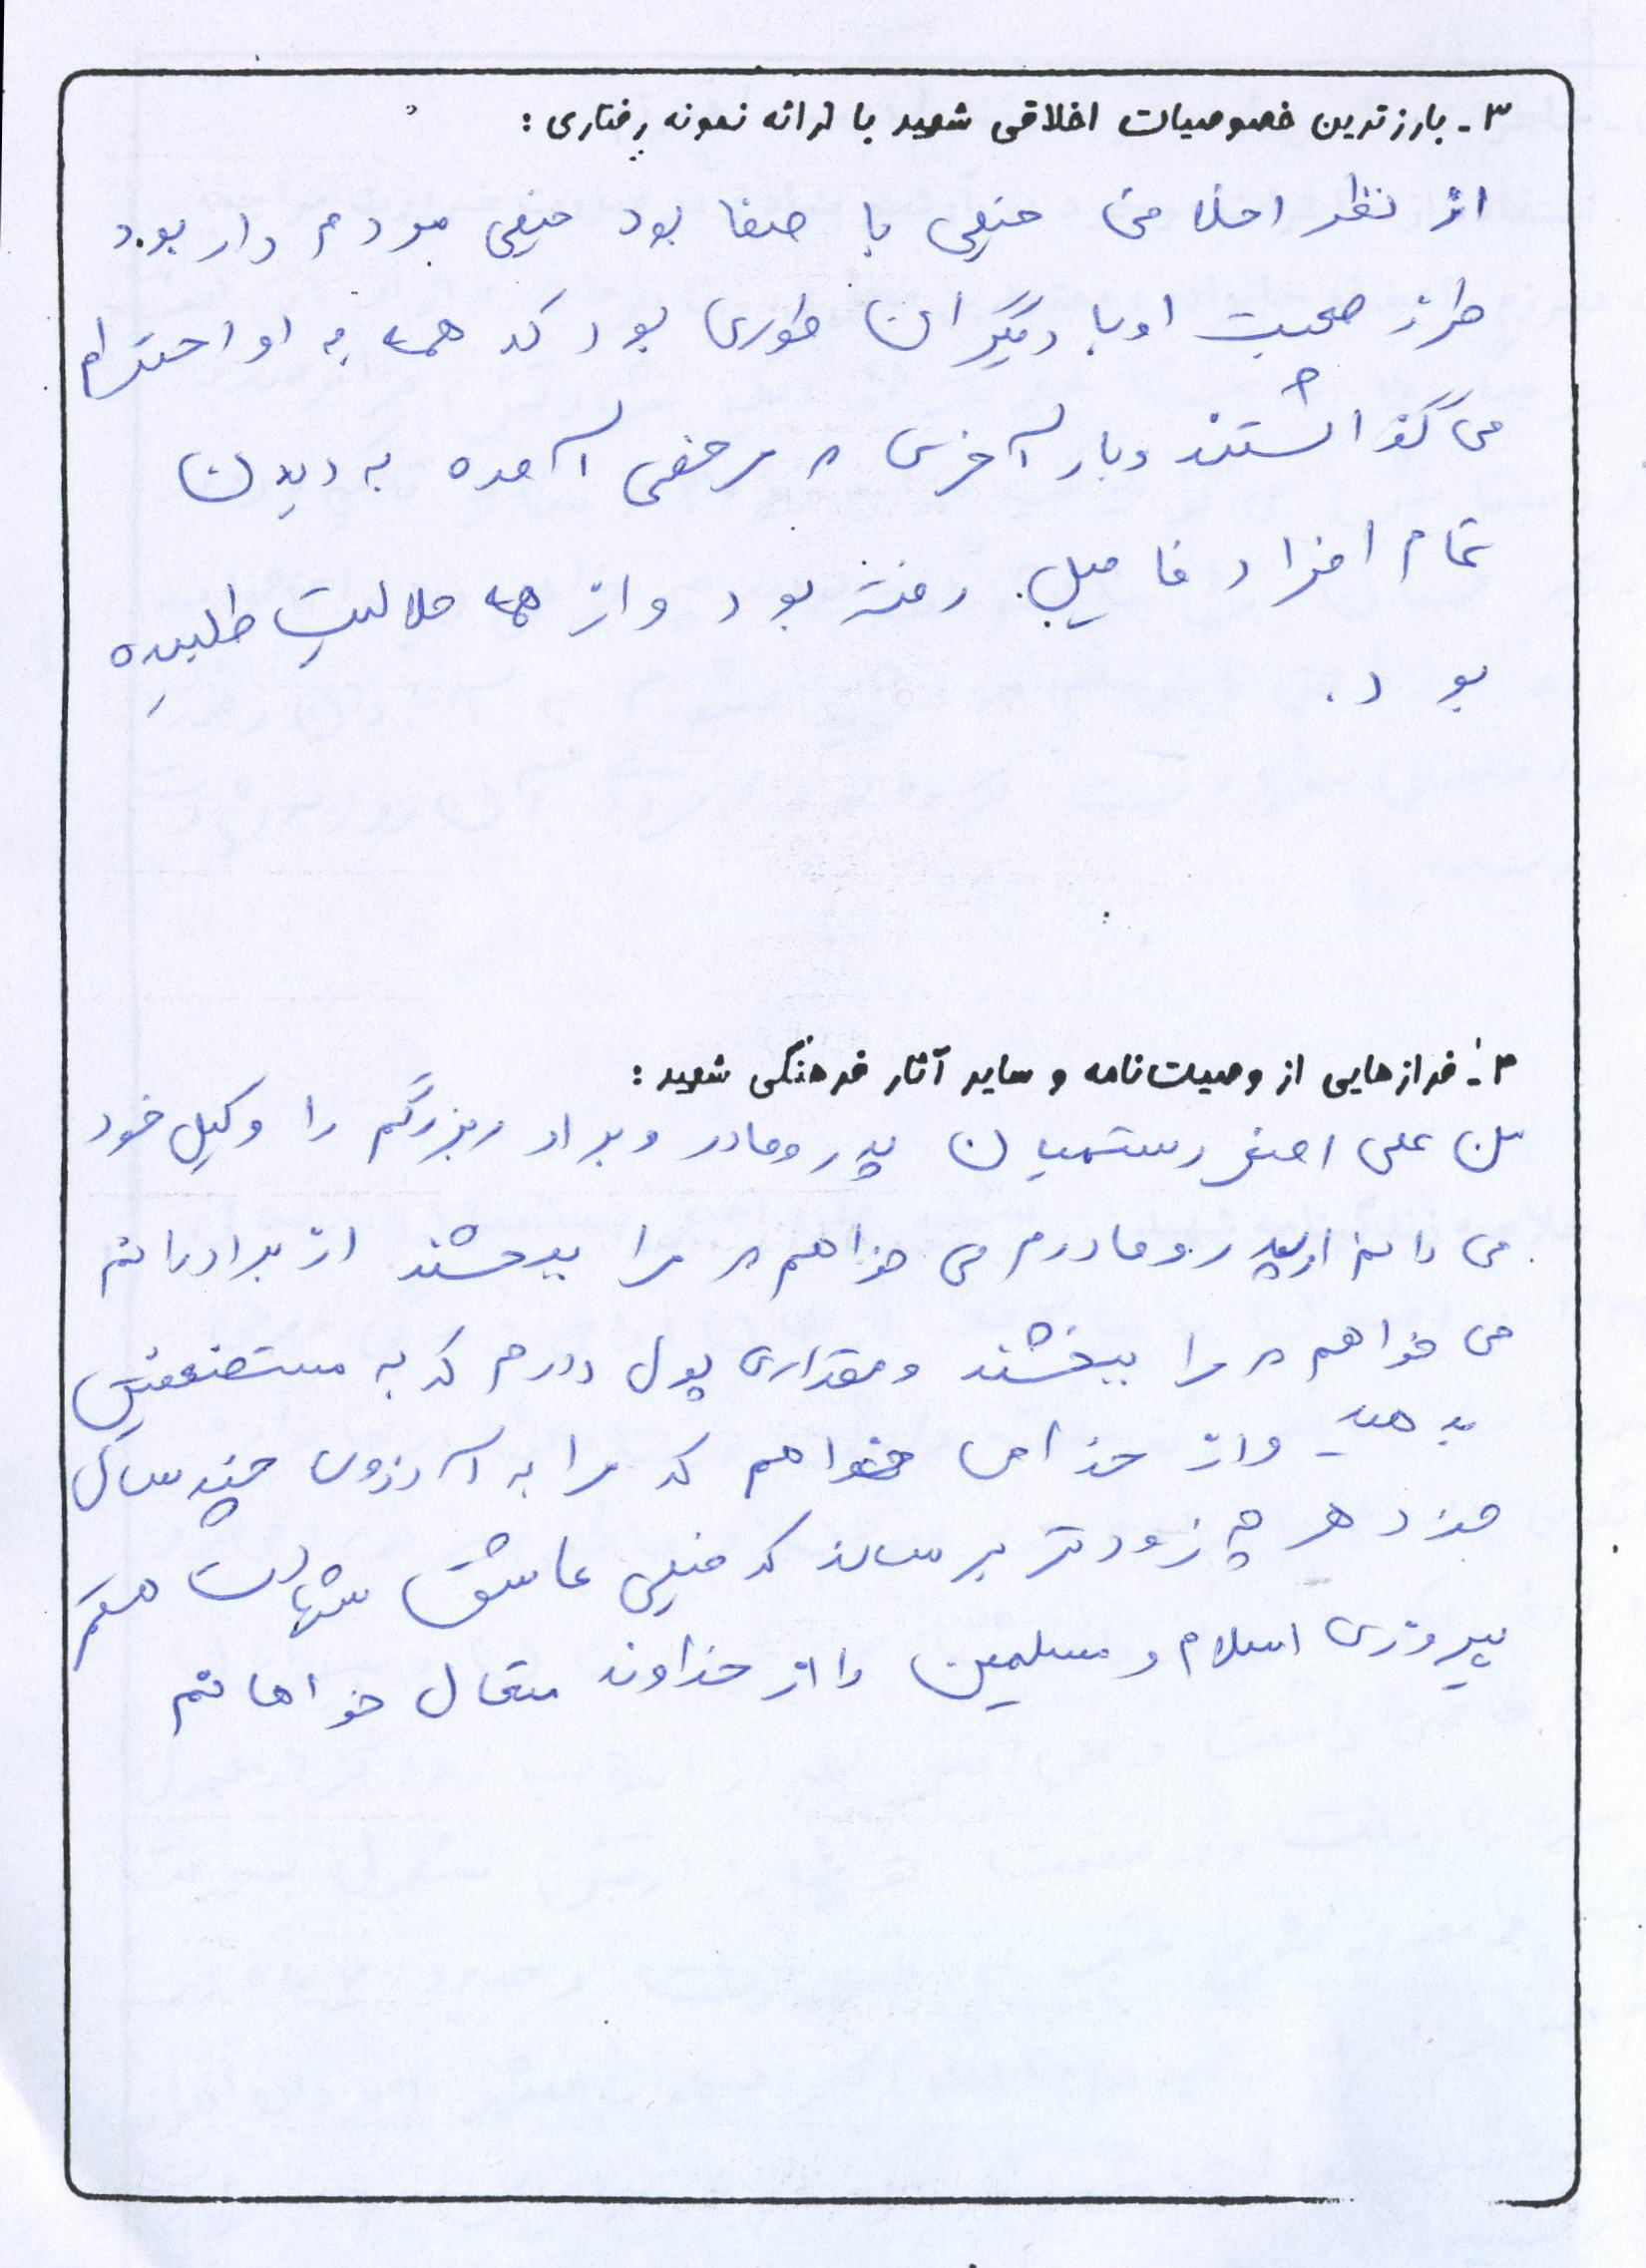 ۳- بارزترین خصوصیات اخلاقی شهید با ارائه نمونه رفتاری:
از نظر اخلاقی خیلی با صفا بود خیلی مردم دار بود
طرز صحبت او با دیگران طوری بود که همه به او احترام
می گذاشتند و بار آخری که مرخصی آمده به دیدن
تمام افراد فامیل رفته بود و از همه حلالیت طلبیده
بود.
۴- فرازهایی از وصیت‌نامه و سایر آثار فرهنگی شهید:
من علی اصغر رستمیان پدر و مادر و برادر بزرگم را وکیل خود
می دانم از پدر و مادرم می خواهم که مرا ببخشند از برادرانم
می خواهم که مرا ببخشند و مقداری پول دارم که به مستضعفین
بدهید و از خدا می خواهم که مرا به آرزوی چند ساله
خود هر چه زودتر برساند که خیلی عاشق شهادت هستم
پیروزی اسلام و مسلمین را از خداوند متعال خواهانم